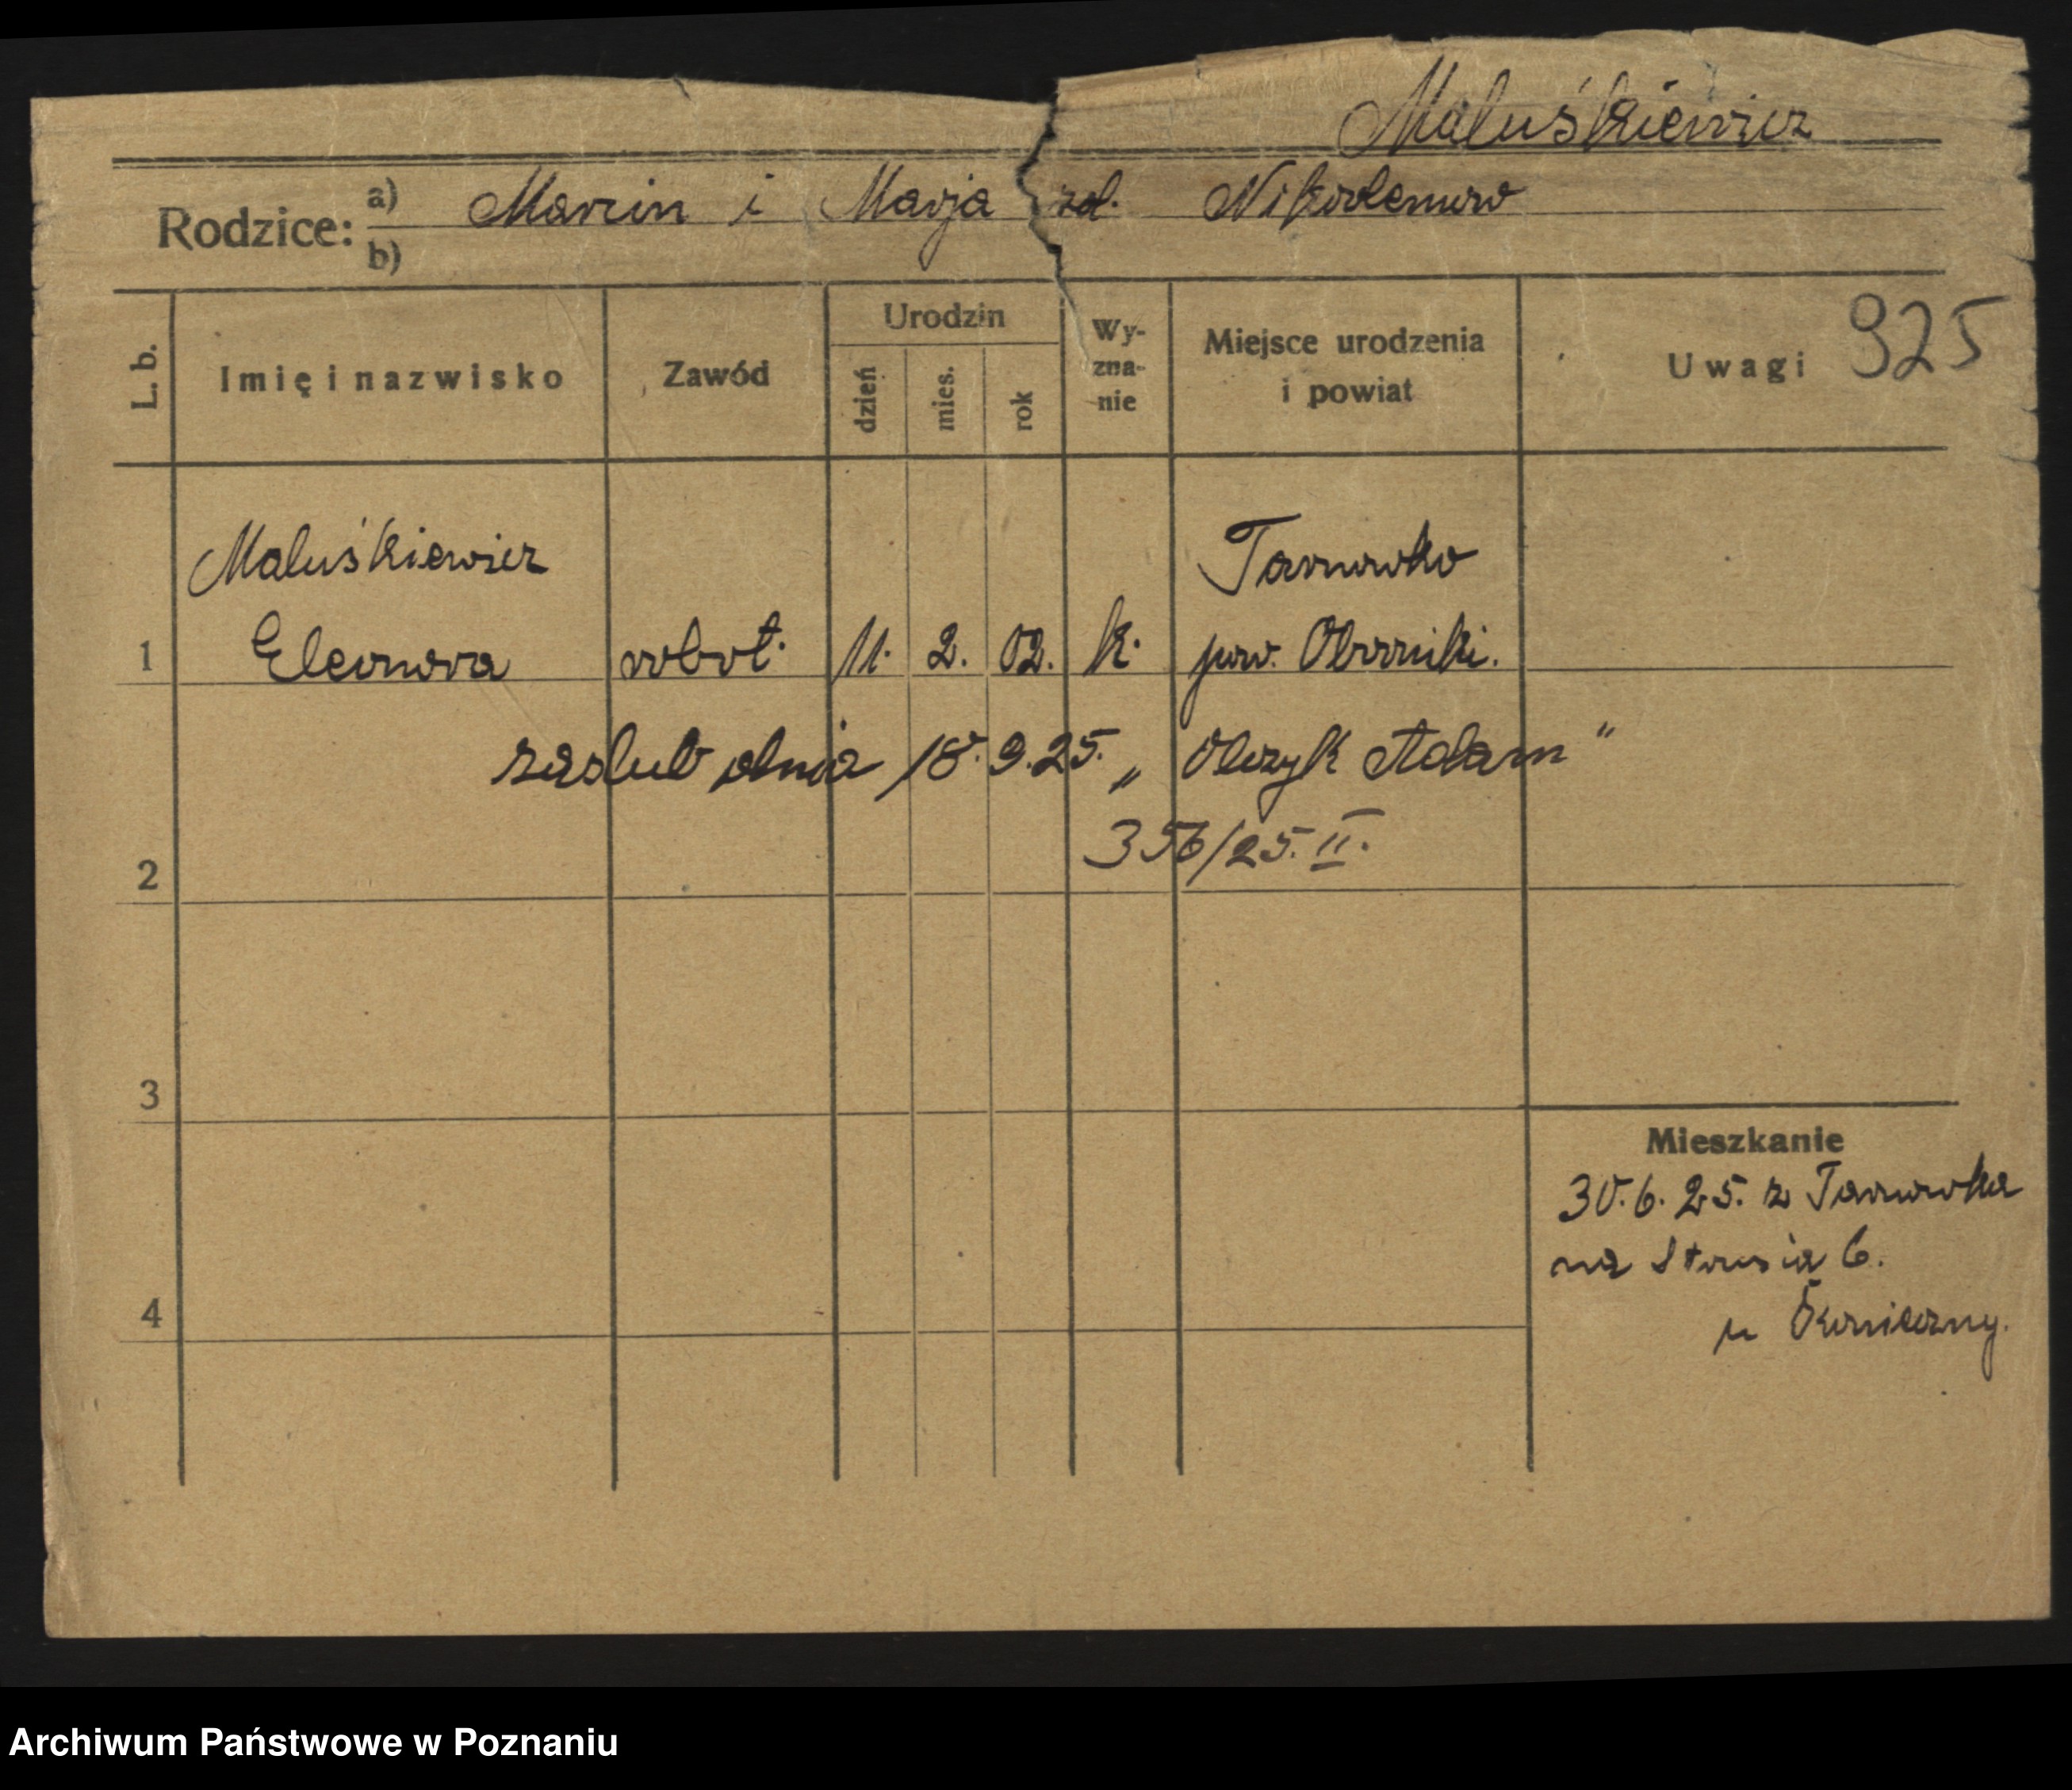 Maluśkiewicz
Rodzice: a) Marcin i Marja zd.
b)
L. b. Imię i nazwisko Zawód Urodzin dzień mies. rok Wy-zna-nie Miejsce urodzenia i powiat Uwagi 925
Maluśkiewicz Tarnowko
1 Eleonora robot. 11. 2. 02. k. pow. Oborniki.
zaslub dnia 18. 9. 25. „ Olczyk Adam "
356/25. II.
2
3
Mieszkanie
30. 6. 25. z Tarnowka
na 6.
4 u
Archiwum Państwowe w Poznaniu